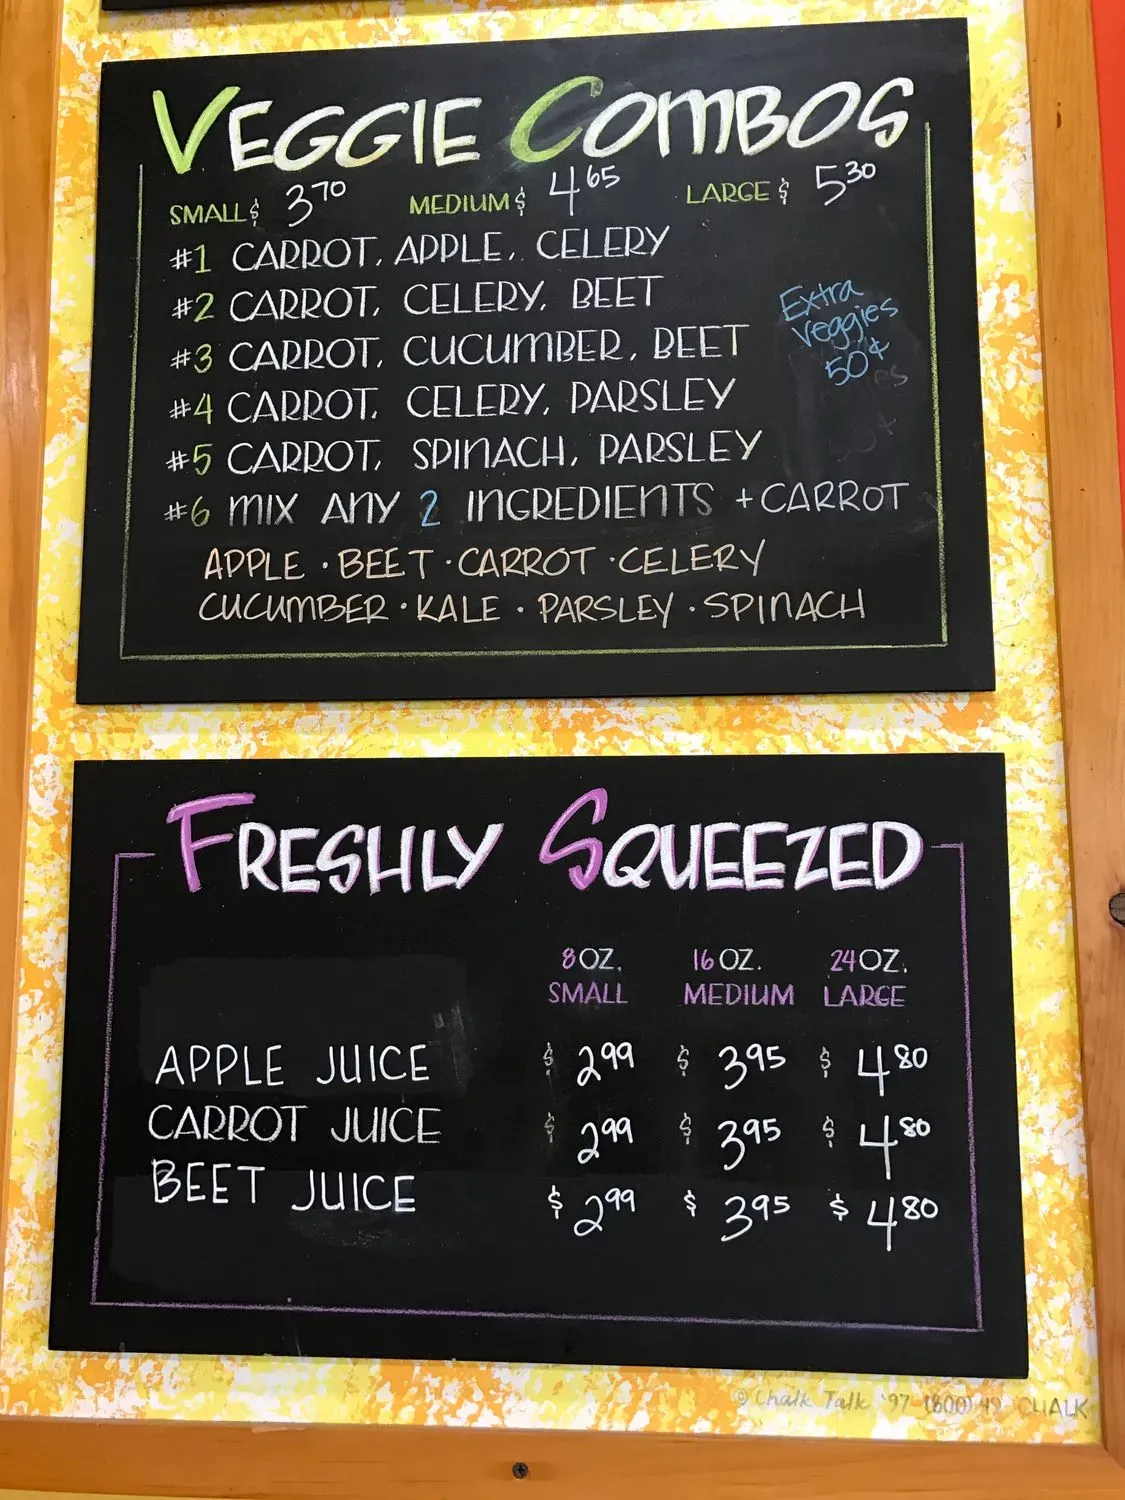 VEGGIE COMBOS
SMALL $ 3.70 MEDIUM $ 4.65 LARGE $ 5.30
#1 CARROT, APPLE, CELERY
#2 CARROT, CELERY, BEET
#3 CARROT, CUCUMBER, BEET
#4 CARROT, CELERY, PARSLEY
#5 CARROT, SPINACH, PARSLEY
#6 MIX ANY 2 INGREDIENTS + CARROT
APPLE · BEET · CARROT · CELERY
CUCUMBER · KALE · PARSLEY · SPINACH
Extra
Veggies
50¢
FRESHLY SQUEEZED
8 OZ. 16 OZ. 24 OZ.
SMALL MEDIUM LARGE
APPLE JUICE $ 2.99 $ 3.95 $ 4.80
CARROT JUICE $ 2.99 $ 3.95 $ 4.80
BEET JUICE $ 2.99 $ 3.95 $ 4.80
© Chalk Talk '97 (800) 49 CHALK